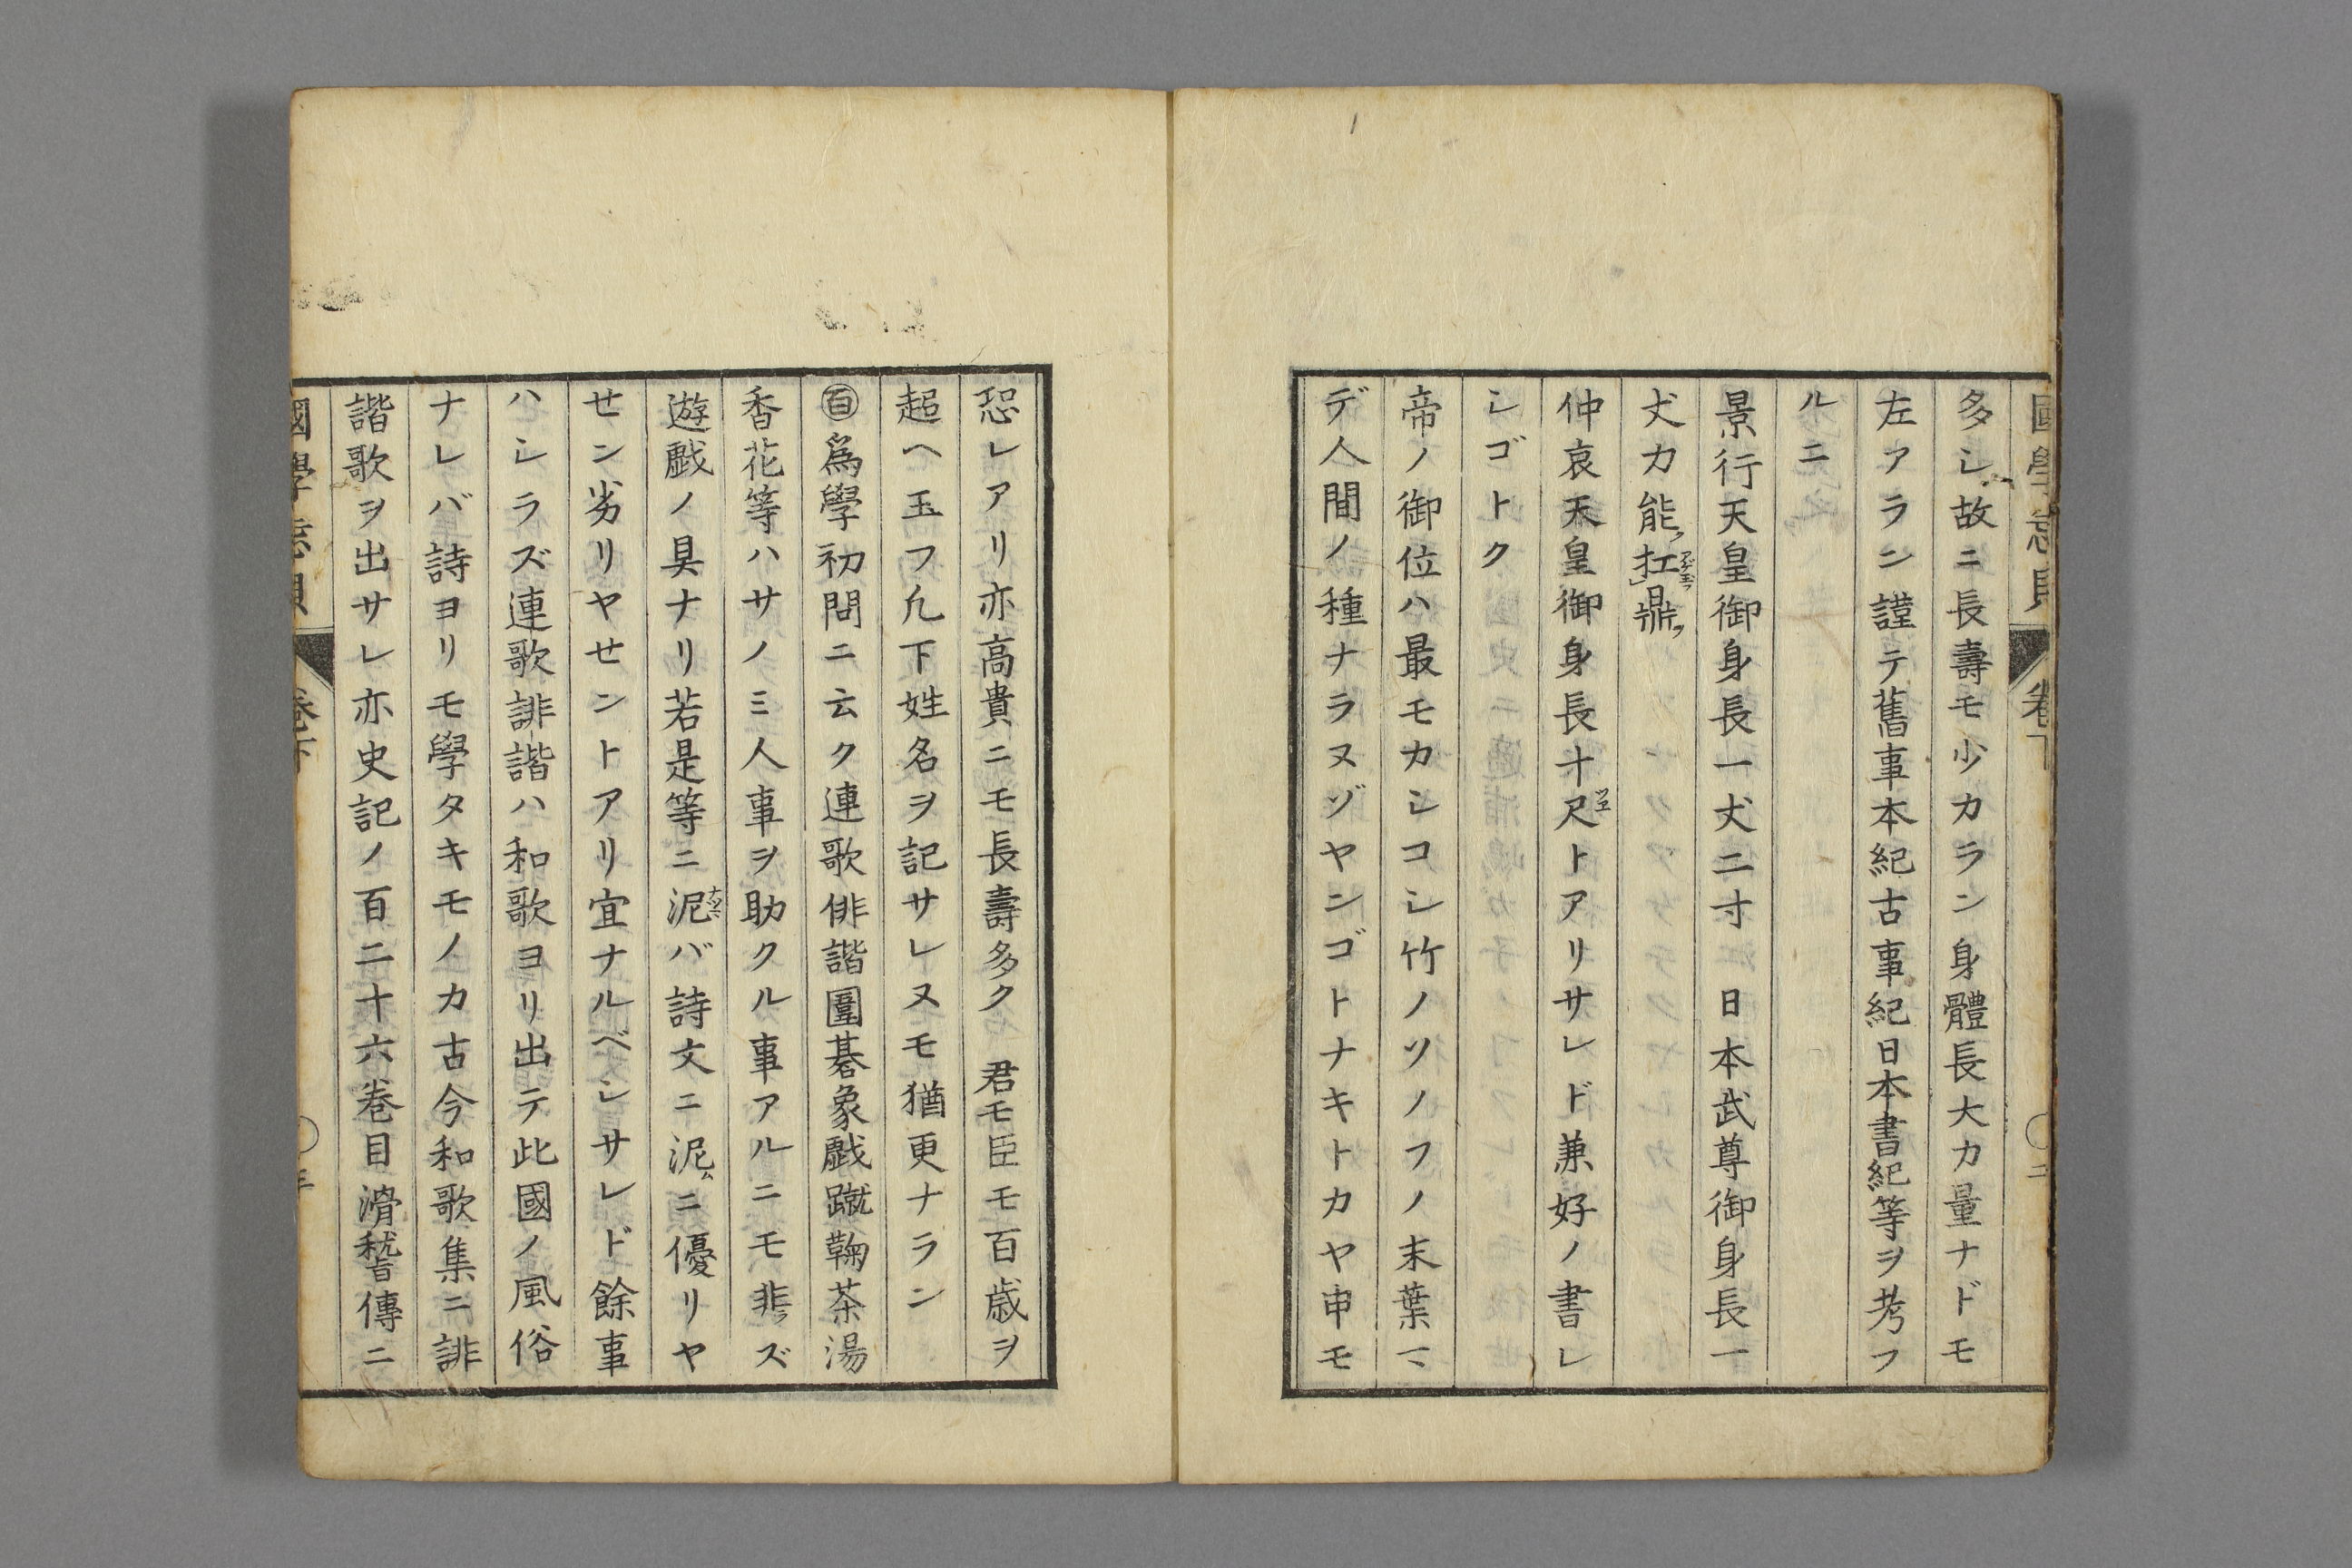 多シ故ニ長壽モ少カラン身體長大力量ナドモ
左アラン謹テ舊事本紀古事紀日本書紀等ヲ考フ
ルニ
景行天皇御身長一丈二寸 日本武尊御身長一
丈力能ク扛鼎ヲ
仲哀天皇御身長十尺トアリサレド兼好ノ書レ
シゴトク
帝ノ御位ハ最モカシコシ竹ノソノフノ末葉マ
デ人間ノ種ナラヌゾヤンゴトナキトカヤ申モ
恐レアリ亦高貴ニモ長壽多ク 君モ臣モ百歳ヲ
超ヘ玉フ凢下姓名ヲ記サレヌモ猶更ナラン
百爲學初問ニ云ク連歌俳諧圍碁象戯蹴鞠茶湯
香花等ハサノミ人事ヲ助クル事アルニモ非ズ
遊戯ノ具ナリ若是等ニ泥バ詩文ニ泥ムニ優リヤ
せン劣リヤせントアリ宜ナルベシサレド餘事
ハシラズ連歌誹諧ハ和歌ヨリ出テ此國ノ風俗
ナレバ詩ヨリモ學タキモノカ古今和歌集ニ誹
諧歌ヲ出サレ亦史記ノ百二十六巻目滑稽傳ニ